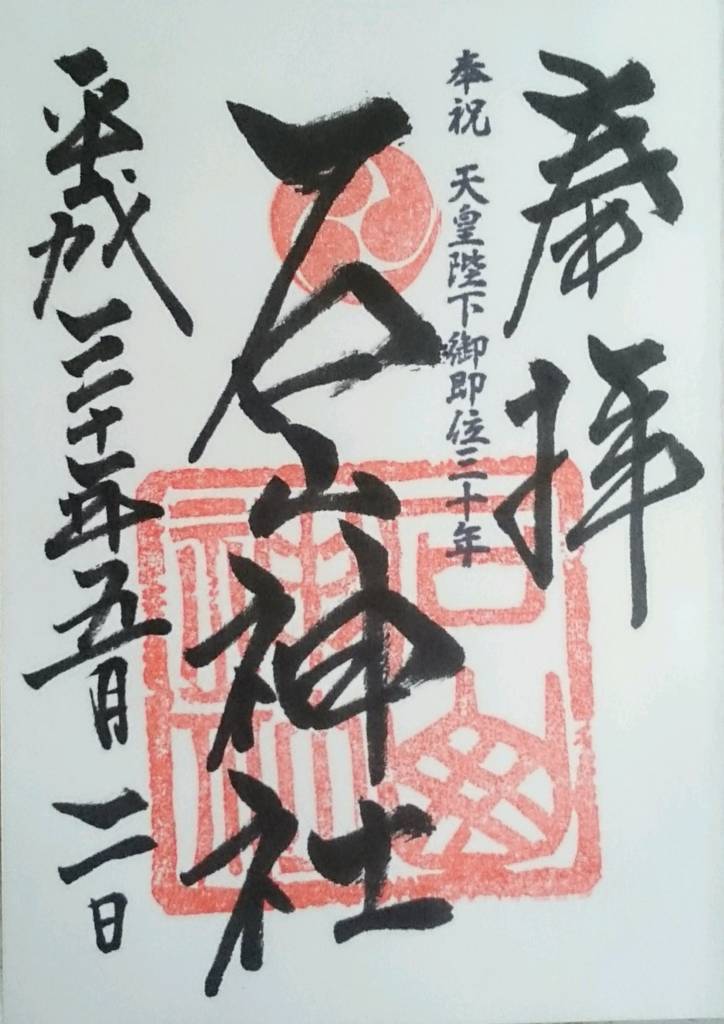 奉拝
奉祝 天皇陛下御即位三十年
神社
平成三十年五月二日